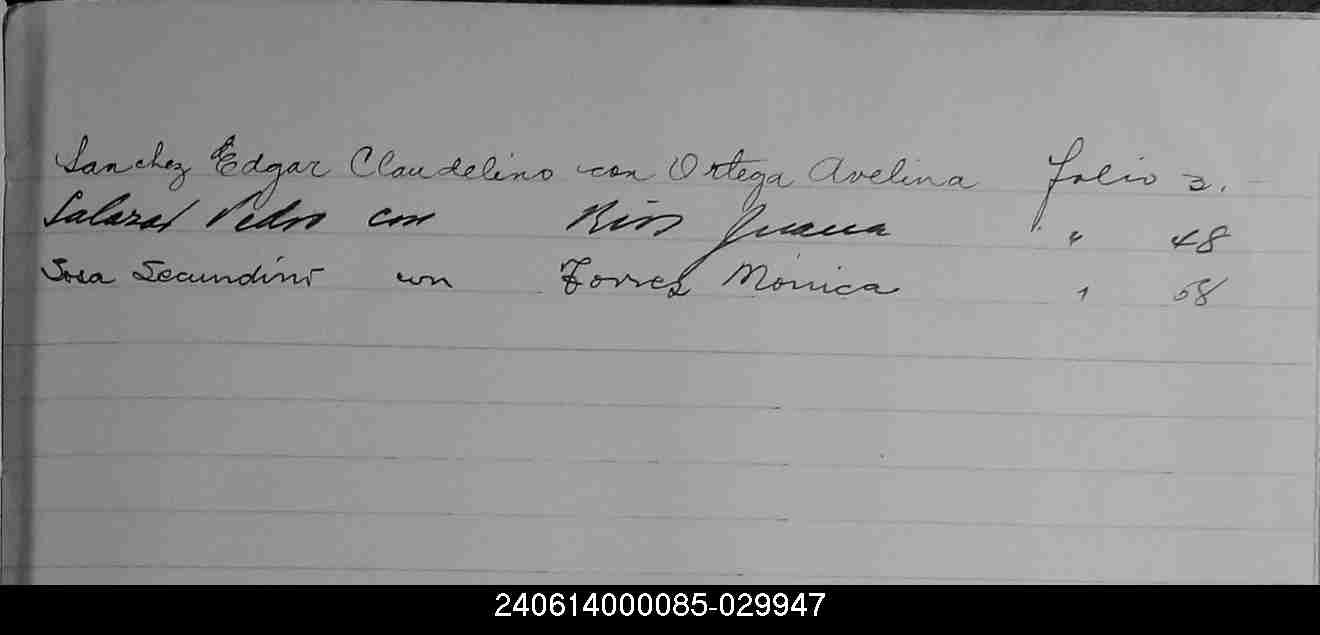 Sanchez Edgar Claudelino con Ortega Avelina folio 2.
Salazar Pedro con Rios Juana " 48
Sosa Secundino con Torres Mónica " 58
240614000085-029947